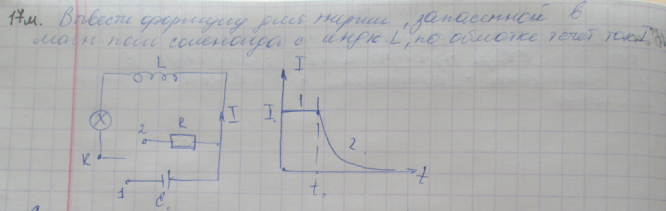 17м. Вывести формулу для энергии, запасенной в
магн. поле соленоида с индук. L, по обмотке течет ток I.
L
I
I
1
2
R
I
2
K
t
1
ε
t₁